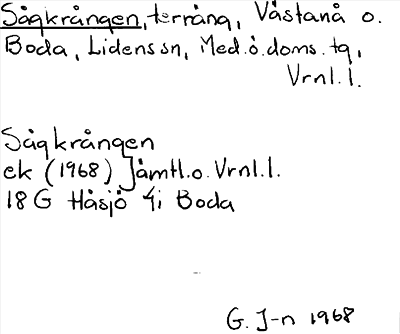 Sågkrången, terräng, Västanå o.
Boda, Lidens sn, Med.ö.doms.tg,
Vrnl.l.
Sågkrången
ek (1968) Jämtl.o.Vrnl.l.
18 G Håsjö 4i Boda
G. J-n 1968